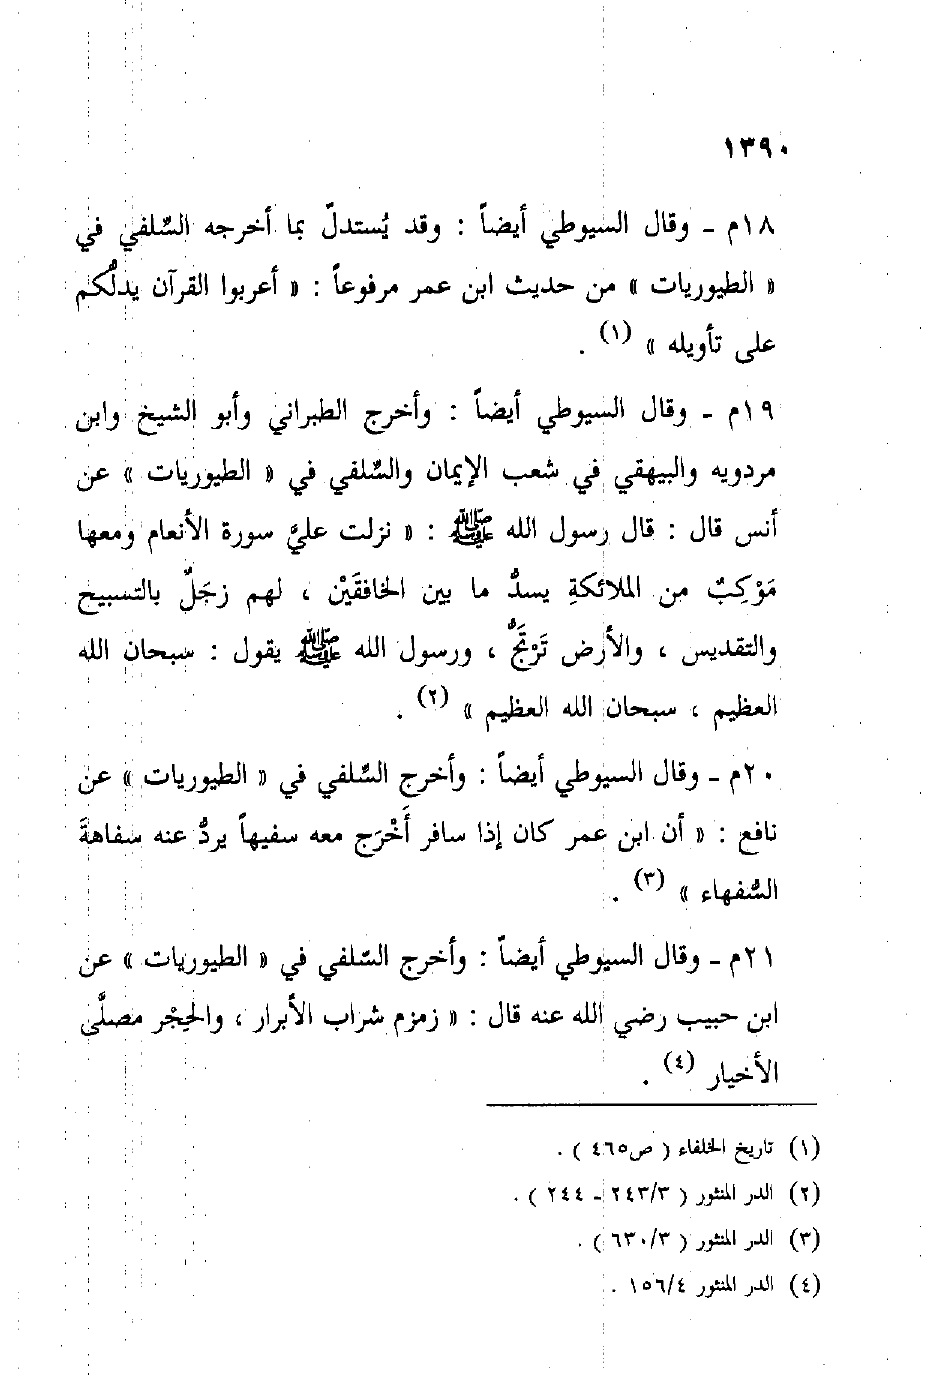 ١٣٩٠
١٨م ـ وقال السيوطي أيضاً : وقد يُستدلّ بما أخرجه السِّلفي في
« الطيوريات » من حديث ابن عمر مرفوعاً : « أعربوا القرآن يدلُّكم
على تأويله » (١) .
١٩م ـ وقال السيوطي أيضاً : وأخرج الطبراني وأبو الشيخ وابن
مردويه والبيهقي في شعب الإيمان والسِّلفي في « الطيوريات » عن
أنس قال : قال رسول الله ﷺ : « نزلت عليَّ سورة الأنعام ومعها
مَوْكِبٌ من الملائكةِ يسدُّ ما بين الخافقَيْن ، لهم زجَلٌ بالتسبيح
والتقديس ، والأرض تَرْتَجُّ ، ورسول الله ﷺ يقول : سبحان الله
العظيم ، سبحان الله العظيم » (٢) .
٢٠م ـ وقال السيوطي أيضاً : وأخرج السِّلفي في « الطيوريات » عن
نافع : « أن ابن عمر كان إذا سافر أَخْرَج معه سفيهاً يردُّ عنه سفاهةَ
السُّفهاء » (٣) .
٢١م ـ وقال السيوطي أيضاً : وأخرج السِّلفي في « الطيوريات » عن
ابن حبيب رضي الله عنه قال : « زمزم شراب الأبرار ، والحِجْر مصلَّى
الأخيار (٤) .
(١) تاريخ الخلفاء ( ص٤٦٥ ) .
(٢) الدر المنثور ( ٢٤٣/٣ ـ ٢٤٤ ) .
(٣) الدر المنثور ( ٦٣٠/٣ ) .
(٤) الدر المنثور ١٥٦/٤ .